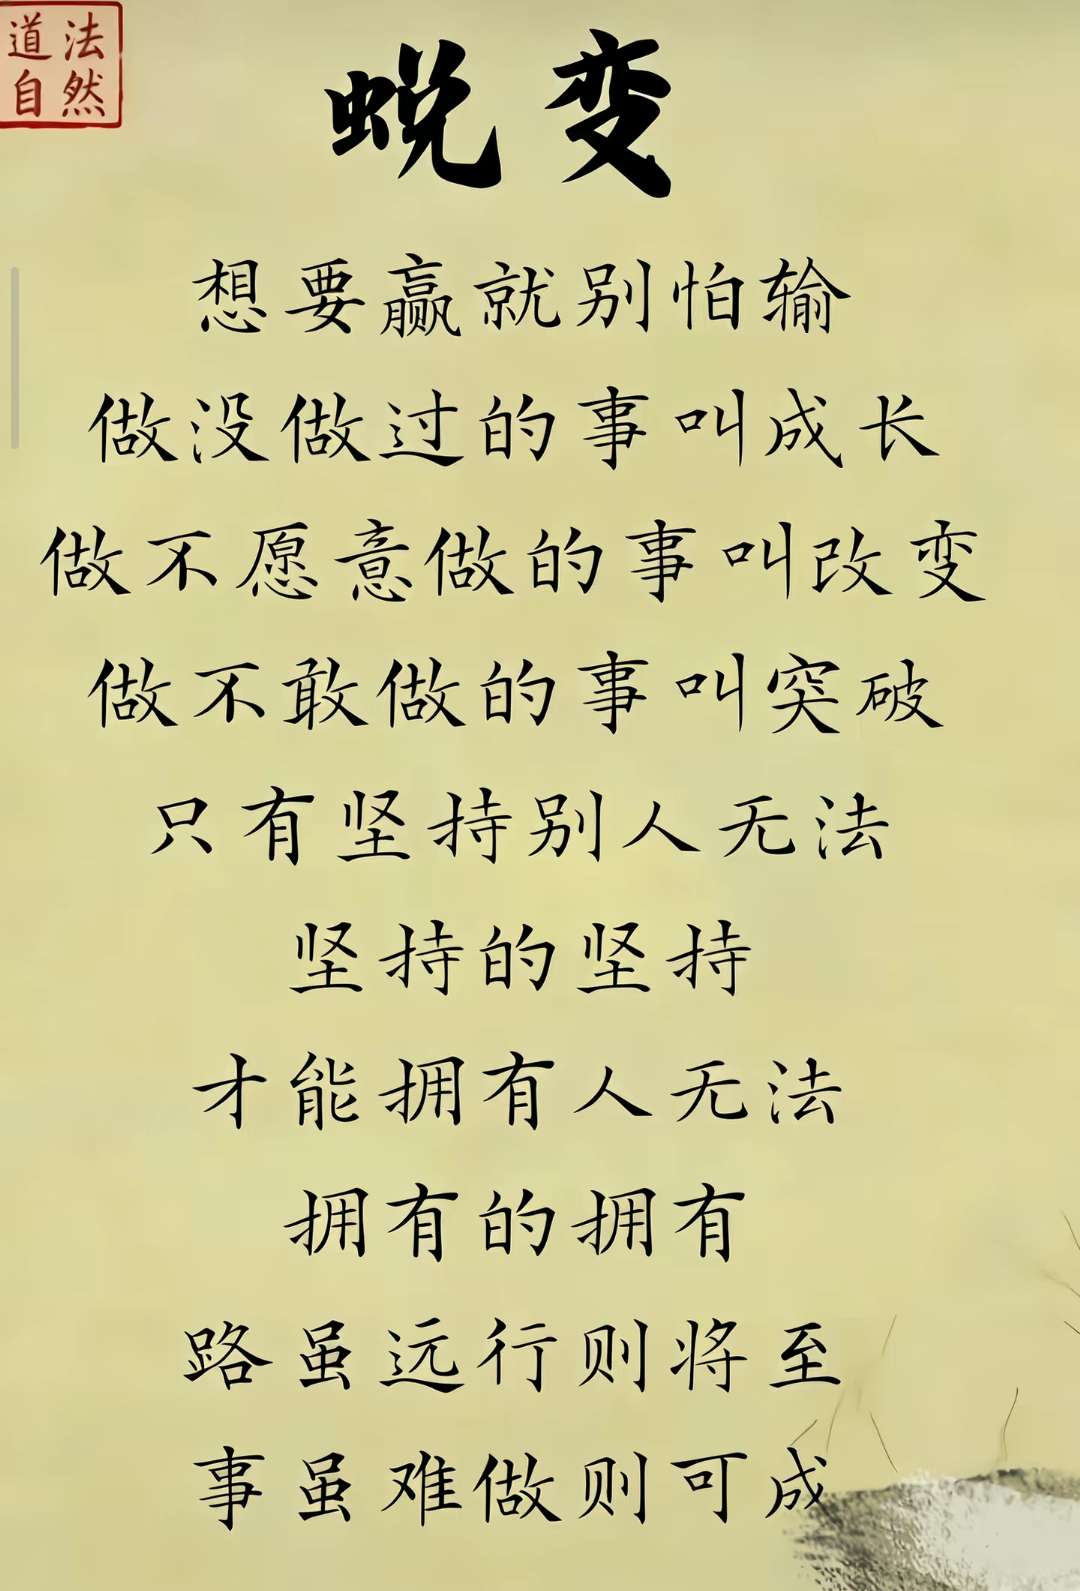 道法
自然
蜕变
想要赢就别怕输
做没做过的事叫成长
做不愿意做的事叫改变
做不敢做的事叫突破
只有坚持别人无法
坚持的坚持
才能拥有人无法
拥有的拥有
路虽远行则将至
事虽难做则可成